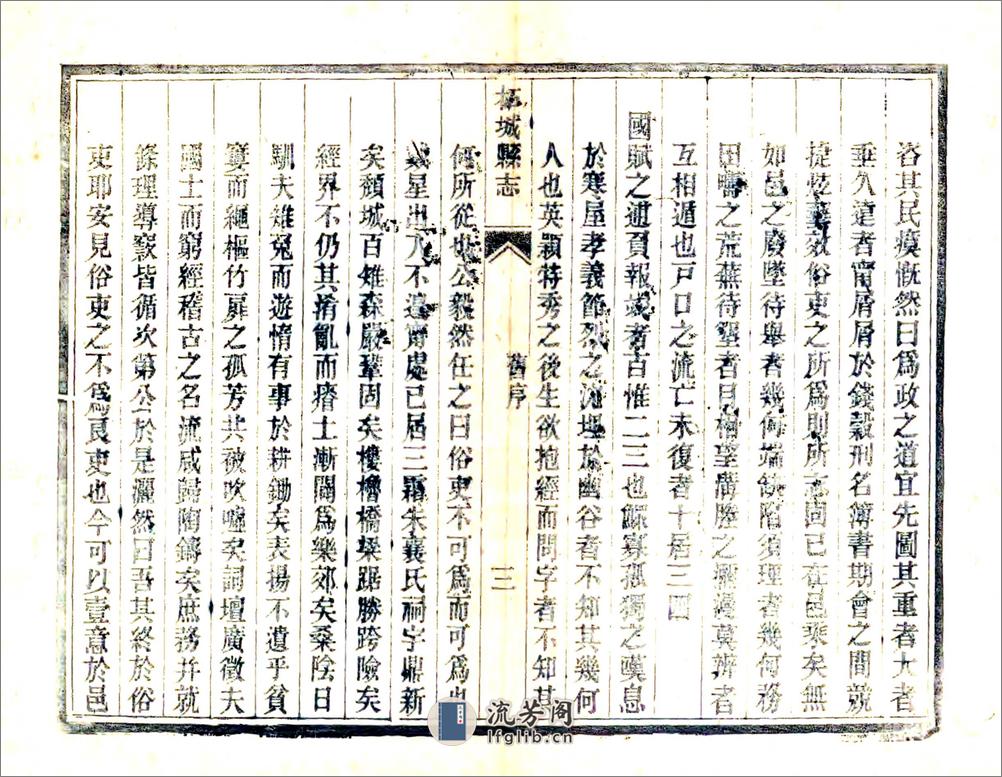 咨其民瘼慨然曰爲政之道宜先圖其重者大者
垂久遠者甯屑屑於錢穀刑名簿書期會之間競
捷炫襄效俗吏之所爲則所志固已在邑乘矣無
如邑之廢墜待舉者幾何端缺陷須理者幾何務
田疇之荒蕪待墾者目相望溝塍之壅漫莫辨者
互相遁也戸口之流亡未復者十居三四
國賦之逋負報竣者百惟二三也鰥寡孤獨之嘆息
於寒屋孝義節烈之沈埋於幽谷者不知其幾何
人也英穎特秀之後生欲抱經而問字者不知其
柘城縣志
舊序
三
何所從也公毅然任之曰俗吏不可爲而可爲也
戴星出入不遑甯處已居三霜朱襄氏祠宇鼎新
矣頹城百雉森嚴鞏固矣樓櫓橋梁踞勝跨險矣
經界不仍其淆亂而瘠土漸闢爲樂郊矣桑陰日
馴夫雉兔而遊惰有事於耕鋤矣表揚不遺乎貧
寠而繩樞竹扉之孤芳共被吹噓矣詞壇廣徵夫
國士而窮經稽古之名流咸歸陶鑄矣庶務幷就
條理導窾皆循次第公於是灑然曰吾其終於俗
吏耶安見俗吏之不爲良吏也今可以壹意於邑
流芳阁
lfglib.cn